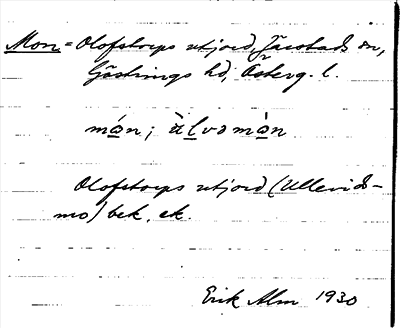 Mon = Olofstorps utjord, Järstads sn,
Göstrings hd, Österg. l.
mo̲n; ùl̲vəmò̲n
Olofstorps utjord (Ullevids-
mo) bek. ek.
Erik Alm 1930